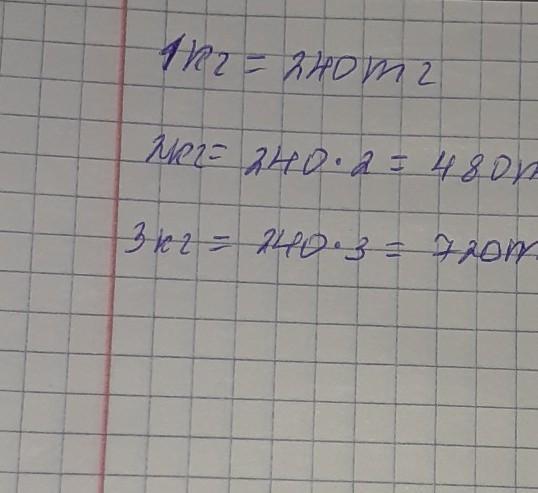 1кг = 240тг
2кг = 240·2 = 480т
3кг = 240·3 = 720т